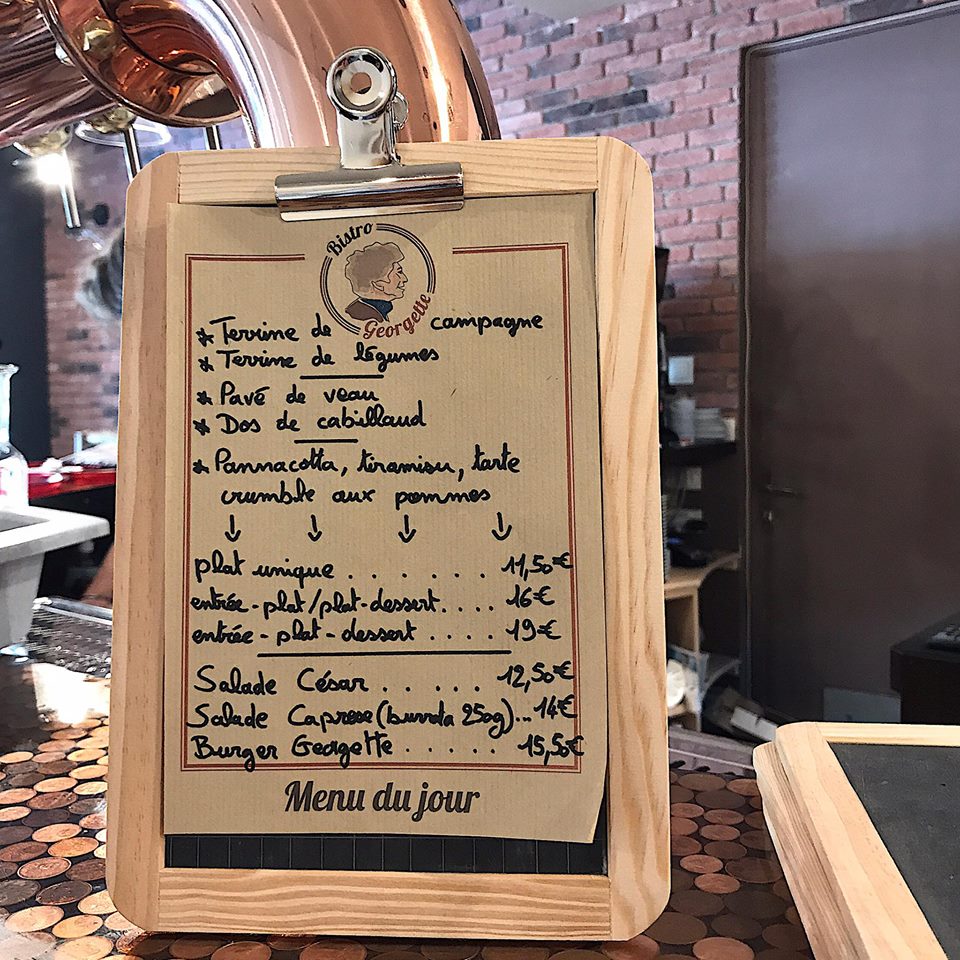 Bistro
Georgette
* Terrine de campagne
* Terrine de légumes
* Pavé de veau
* Dos de cabillaud
* Pannacotta, tiramisu, tarte
crumble aux pommes
↓ ↓ ↓ ↓
plat unique . . . . . . 11,50€
entrée-plat/plat-dessert.... 16€
entrée-plat-dessert .... 19€
Salade César . . . . . 12,50€
Salade Caprese (burrata 250g)... 14€
Burger Georgette . . . . . 15,50€
Menu du jour